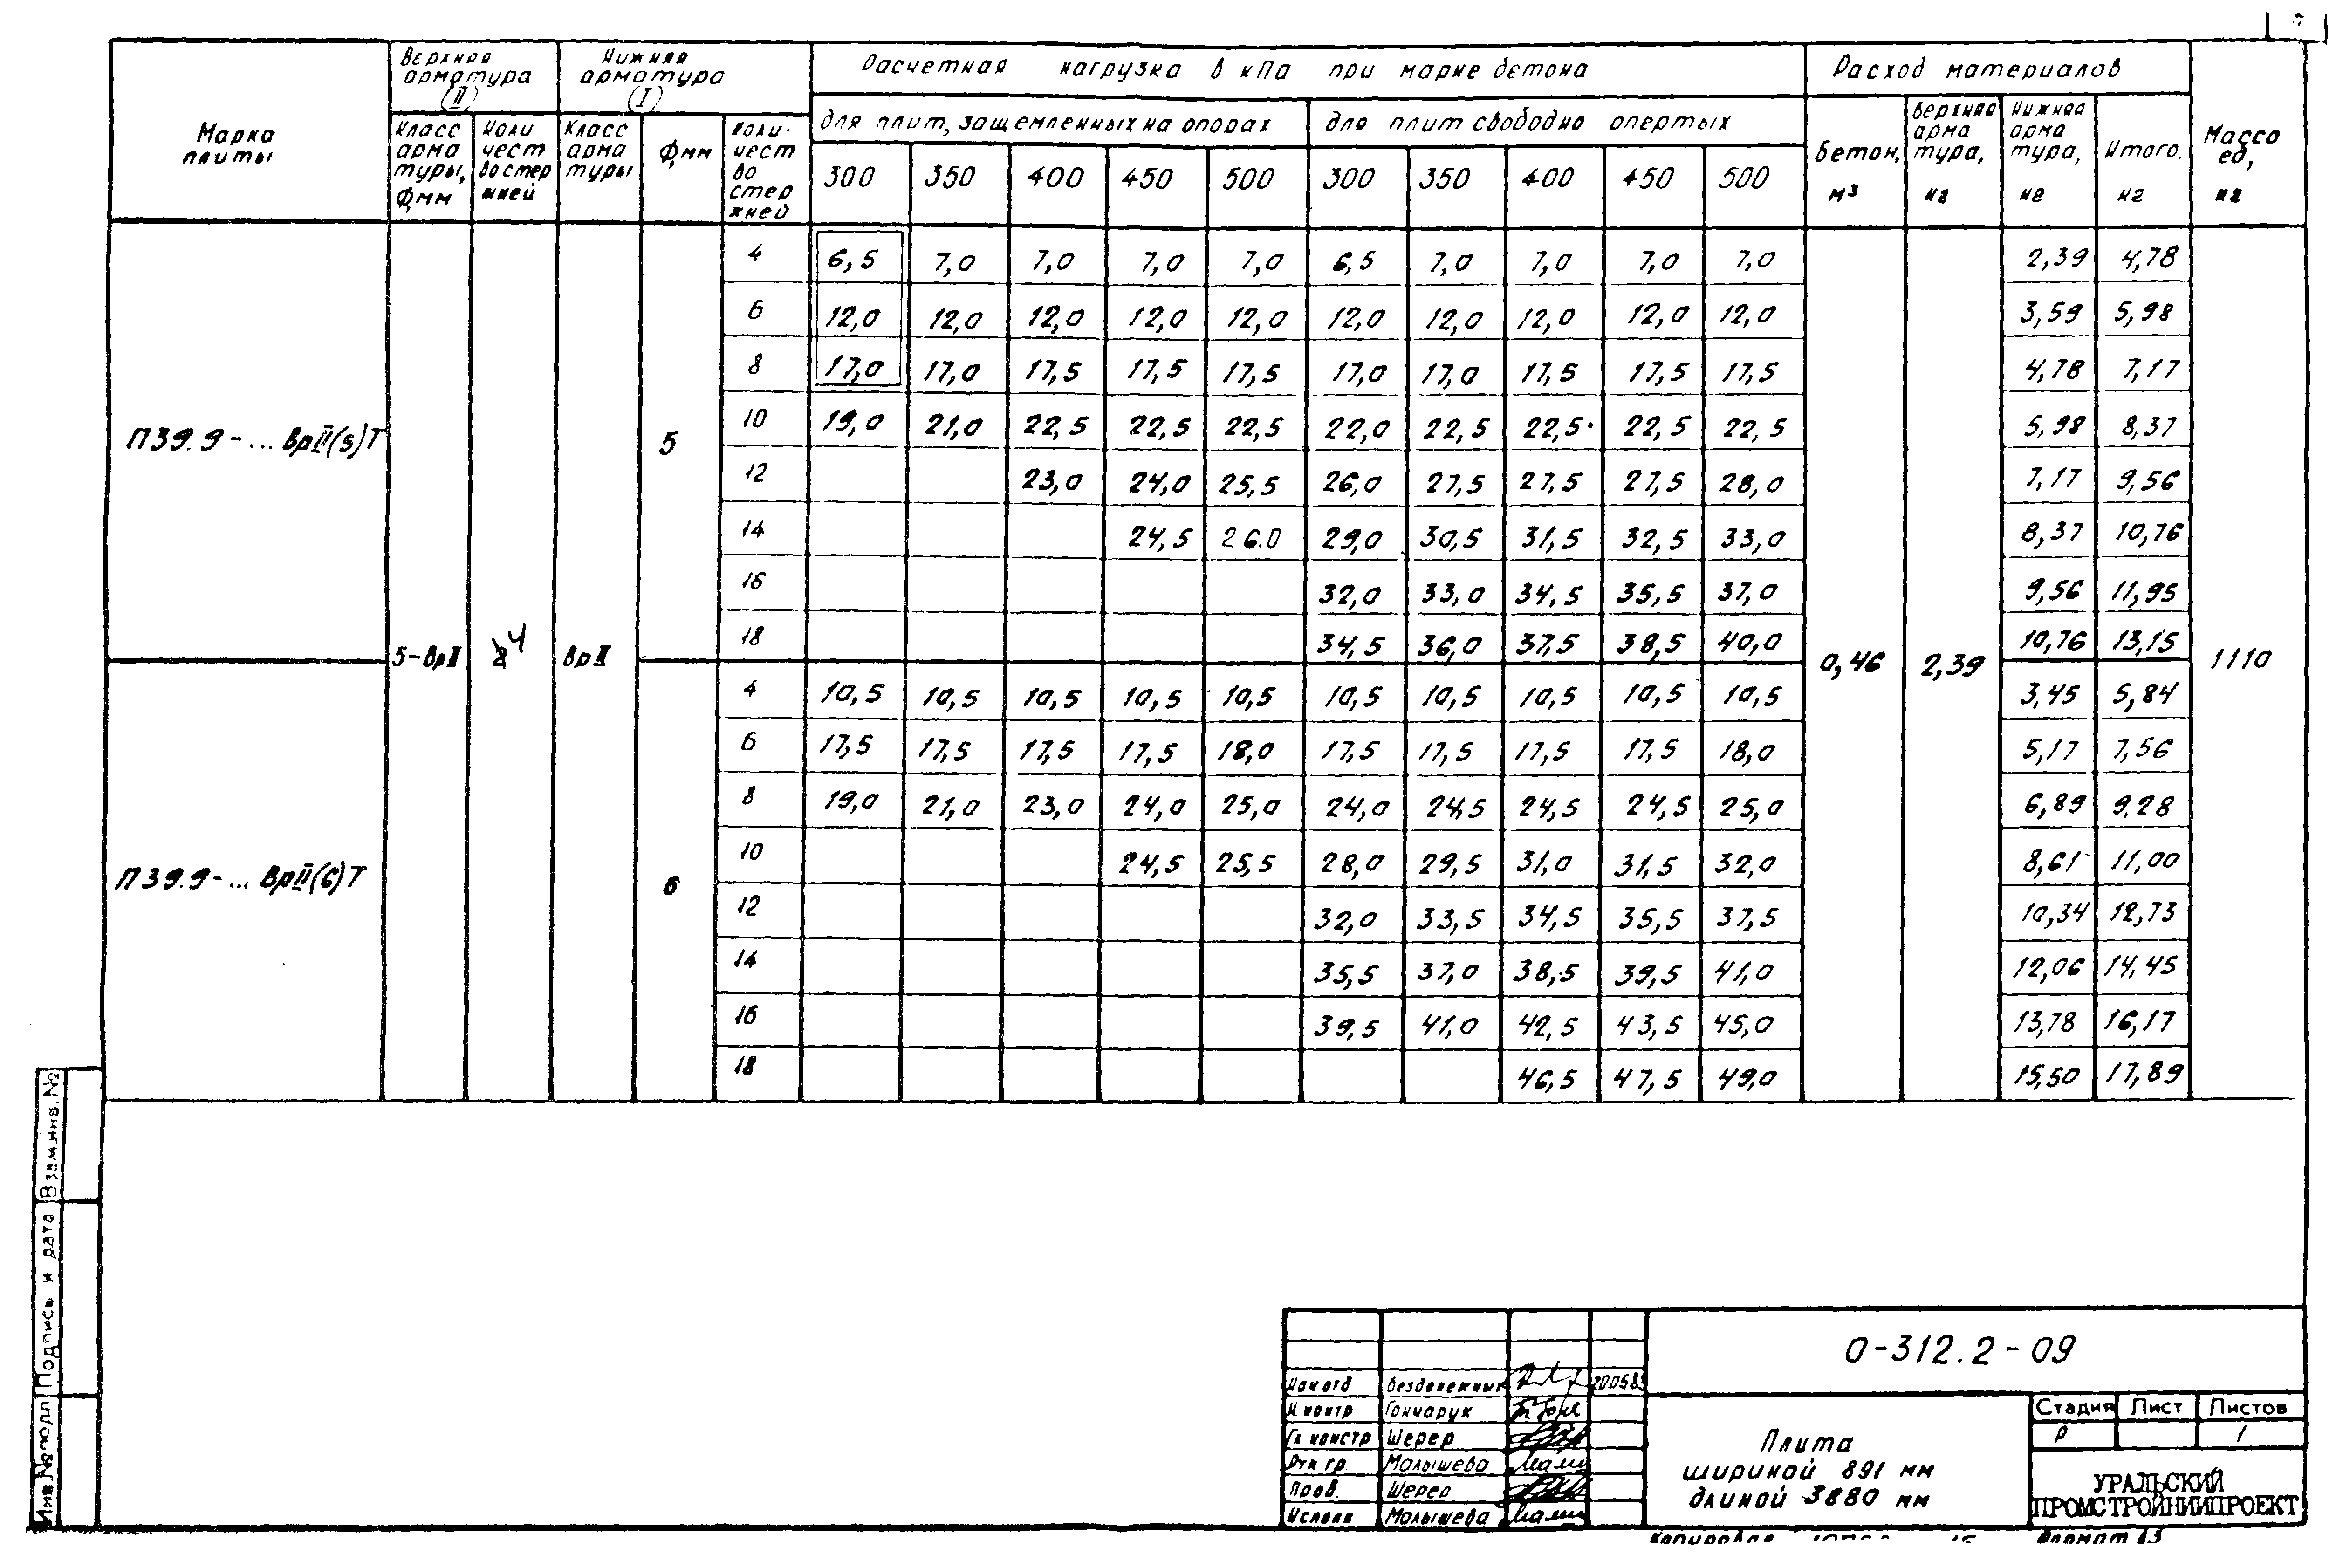 Марка плиты
Верхняя арматура (II)
Нижняя арматура (I)
Расчетная нагрузка в кПа при марке бетона
Расход материалов
Масса ед, кг
Класс арматуры, Ф,мм
Количество стержней
Класс арматуры
Ф,мм
Количество стержней
для плит, защемленных на опорах
для плит свободно опертых
Бетон, м³
Верхняя арматура, кг
Нижняя арматура, кг
Итого, кг
300 350 400 450 500 300 350 400 450 500
П39.9-... ВрII(5)Т
5-ВрII
4
ВрII
5
0,46
2,39
1110
4 6,5 7,0 7,0 7,0 7,0 6,5 7,0 7,0 7,0 7,0 2,39 4,78
6 12,0 12,0 12,0 12,0 12,0 12,0 12,0 12,0 12,0 12,0 3,59 5,98
8 17,0 17,0 17,5 17,5 17,5 17,0 17,0 17,5 17,5 17,5 4,78 7,17
10 19,0 21,0 22,5 22,5 22,5 22,0 22,5 22,5 22,5 22,5 5,98 8,37
12 23,0 24,0 25,5 26,0 27,5 27,5 27,5 28,0 7,17 9,56
14 24,5 26.0 29,0 30,5 31,5 32,5 33,0 8,37 10,76
16 32,0 33,0 34,5 35,5 37,0 9,56 11,95
18 34,5 36,0 37,5 38,5 40,0 10,76 13,15
П39.9-... ВрII(6)Т
6
4 10,5 10,5 10,5 10,5 10,5 10,5 10,5 10,5 10,5 10,5 3,45 5,84
6 17,5 17,5 17,5 17,5 18,0 17,5 17,5 17,5 17,5 18,0 5,17 7,56
8 19,0 21,0 23,0 24,0 25,0 24,0 24,5 24,5 24,5 25,0 6,89 9,28
10 24,5 25,5 28,0 29,5 31,0 31,5 32,0 8,61 11,00
12 32,0 33,5 34,5 35,5 37,5 10,34 12,73
14 35,5 37,0 38,5 39,5 41,0 12,06 14,45
16 39,5 41,0 42,5 43,5 45,0 13,78 16,17
18 46,5 47,5 49,0 15,50 17,89
Взам.инв.№
Подпись и дата
Инв.№подл
0-312.2-09
Нач отд Безденежных
Н.контр Гончарук
Гл констр Шерер
Рук гр. Малышева
Пров. Шерер
Исполн Малышева
Плита
шириной 891 мм
длиной 3880 мм
Стадия Лист Листов
Р 1
УРАЛЬСКИЙ
ПРОМСТРОЙНИИПРОЕКТ
Копировал
Формат А3